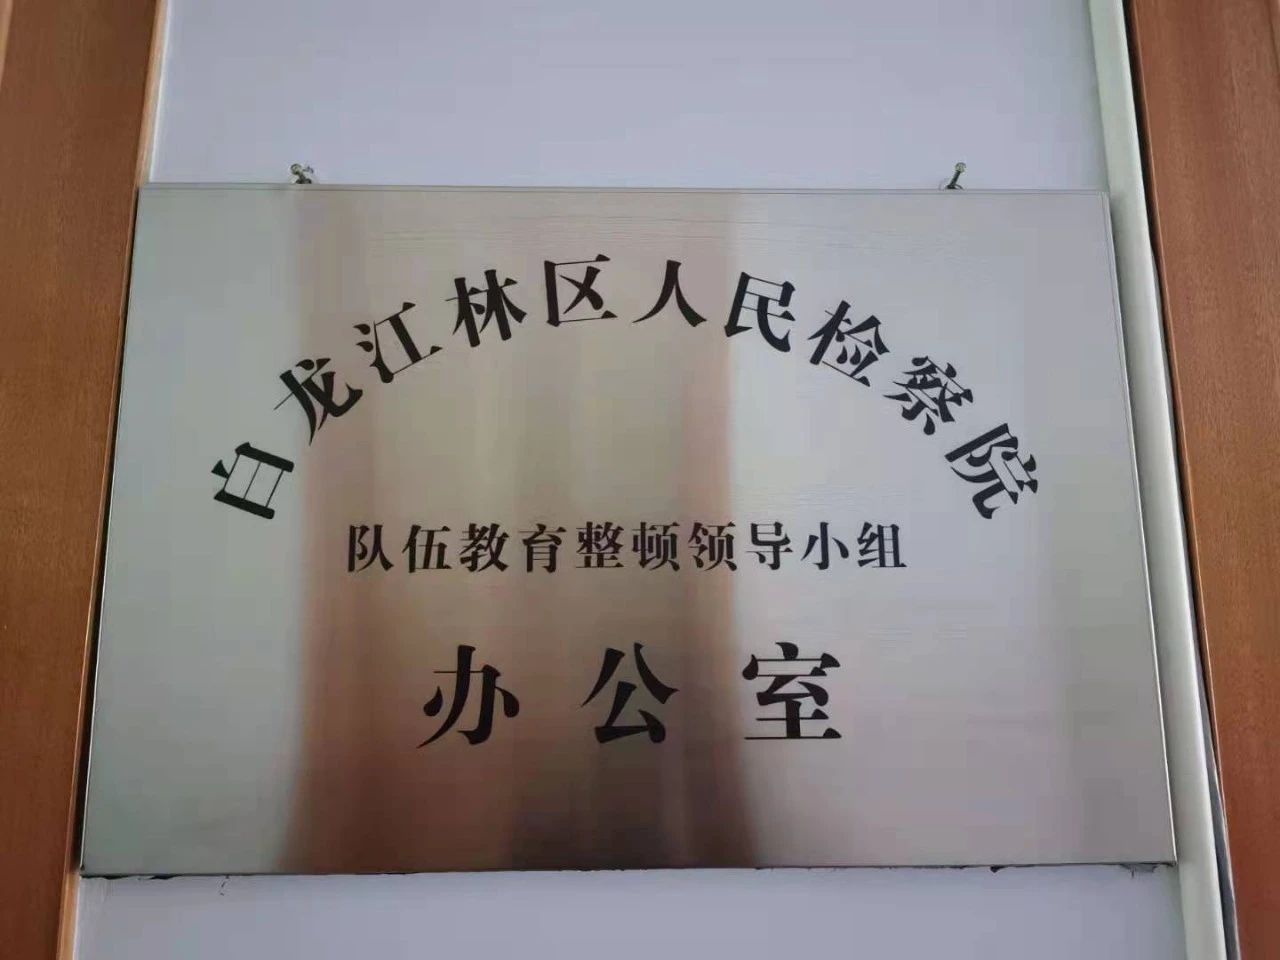 白龙江林区人民检察院
队伍教育整顿领导小组
办公室